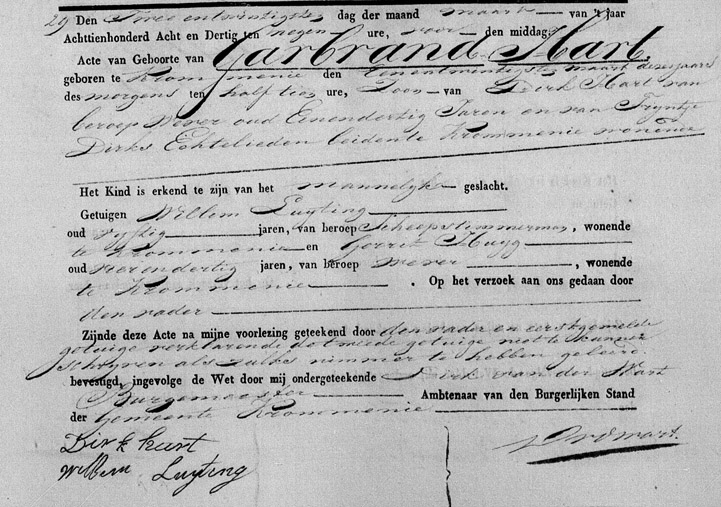 29 Den Twee entwintigste dag der maand maart van 't jaar
Achttienhonderd Acht en Dertig ten negen ure, voor den middag,
Acte van Geboorte van Garbrand Hart,
geboren te Krommenie den Eenentwintigste maart dezes jaars
des morgens ten half tien ure, Zoon van Dirk Hart van
beroep Wever oud Eenendertig Jaren en van Tryntje
Dirks Echtelieden beidente Krommenie wonende
Het Kind is erkend te zijn van het mannelyke geslacht.
Getuigen Willem Luyting
oud vyftig jaren, van beroep Scheepstimmerman, wonende
te Krommenie en Gerrit Huyg
oud Vierendertig jaren, van beroep wever, wonende
te Krommenie. Op het verzoek aan ons gedaan door
den vader
Zijnde deze Acte na mijne voorlezing geteekend door den vader en eerstgemelde
getuige verklarende de tweede getuige niet te kunnen
schryven als zulks nimmer te hebben geleerd.
bevestigd, ingevolge de Wet door mij ondergeteekende Dirk van der Mart
Burgemeester Ambtenaar van den Burgerlijken Stand
der Gemeente Krommenie
Dirk hart
Willem Luyting